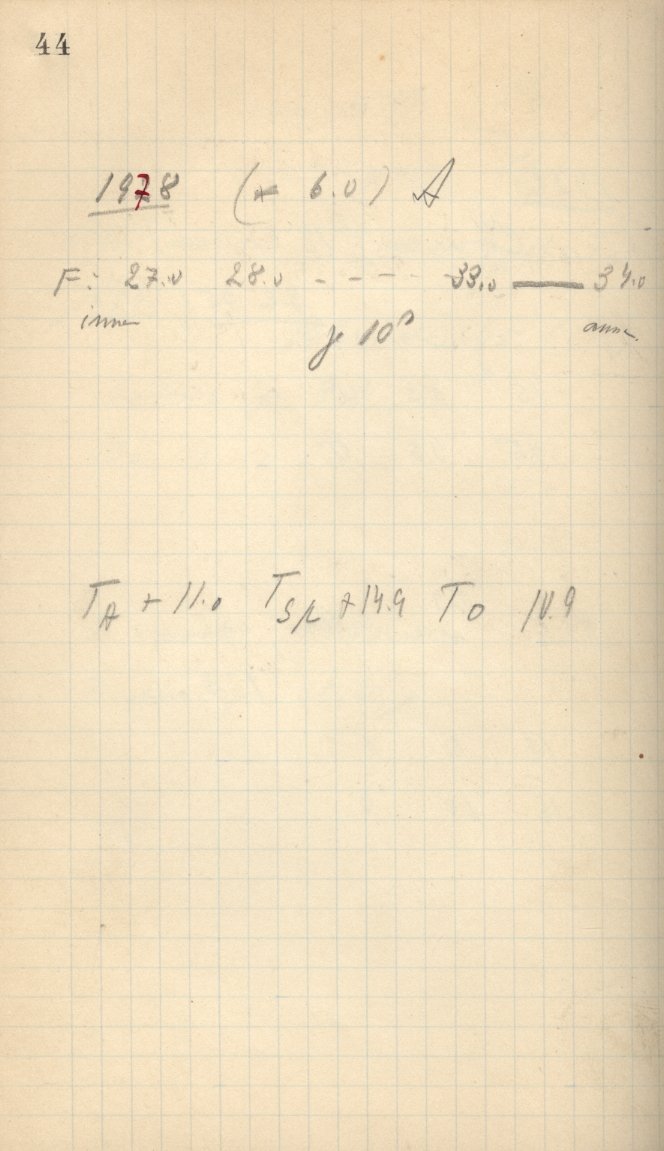 44
1978 (* 6.0) A
F: 27.0 28.0 - - - - 33.0 — 34.0
je 10°
T_A + 11.0 T_Sp + 14.9 T_O 10.9